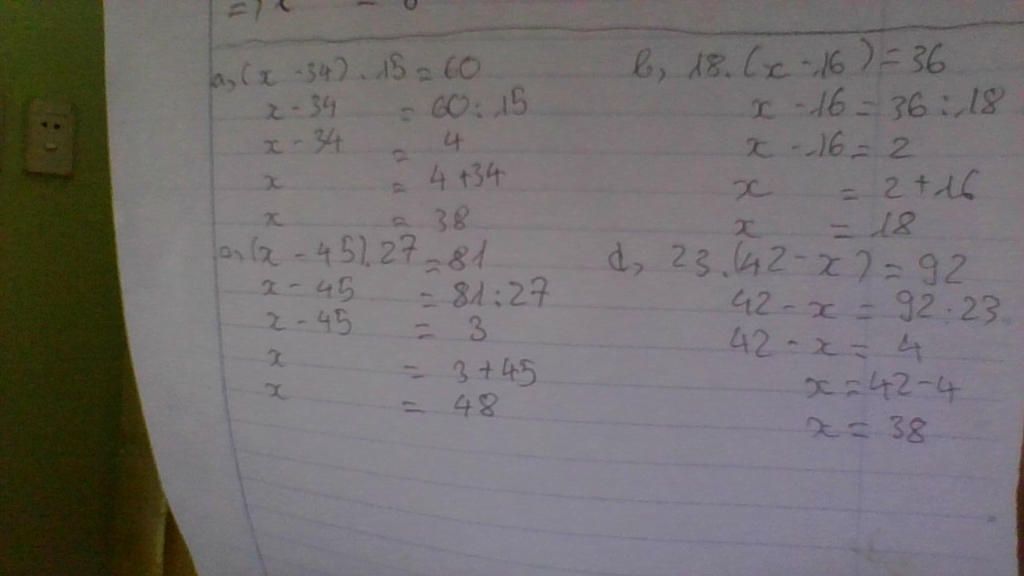 a, (x - 34) . 15 = 60
x - 34 = 60 : 15
x - 34 = 4
x = 4 + 34
x = 38
b, 18. (x - 16) = 36
x - 16 = 36 : 18
x - 16 = 2
x = 2 + 16
x = 18
(x - 45). 27 = 81
x - 45 = 81 : 27
x - 45 = 3
x = 3 + 45
x = 48
d, 23. (42 - x) = 92
42 - x = 92 : 23
42 - x = 4
x = 42 - 4
x = 38